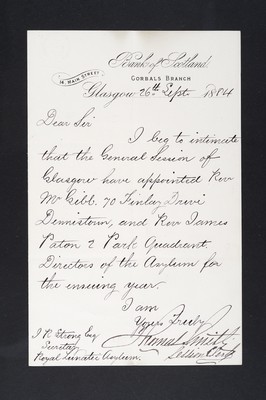 Bank of Scotland
14 MAIN STREET
GORBALS BRANCH
Glasgow 26th Septr 1884
Dear Sir
I beg to intimate
that the General Session of
Glasgow have appointed Rev
Mr Gibb. 70 Finlay Drive
Dennistown, and Rev James
Paton 2 Park Quadrant
Directors of the Asylum for
the ensuing year.
I am
Yours Truly
Thomas Smith
Session Clerk
J R Strong Esq
Secretary
Royal Lunatic Asylum.